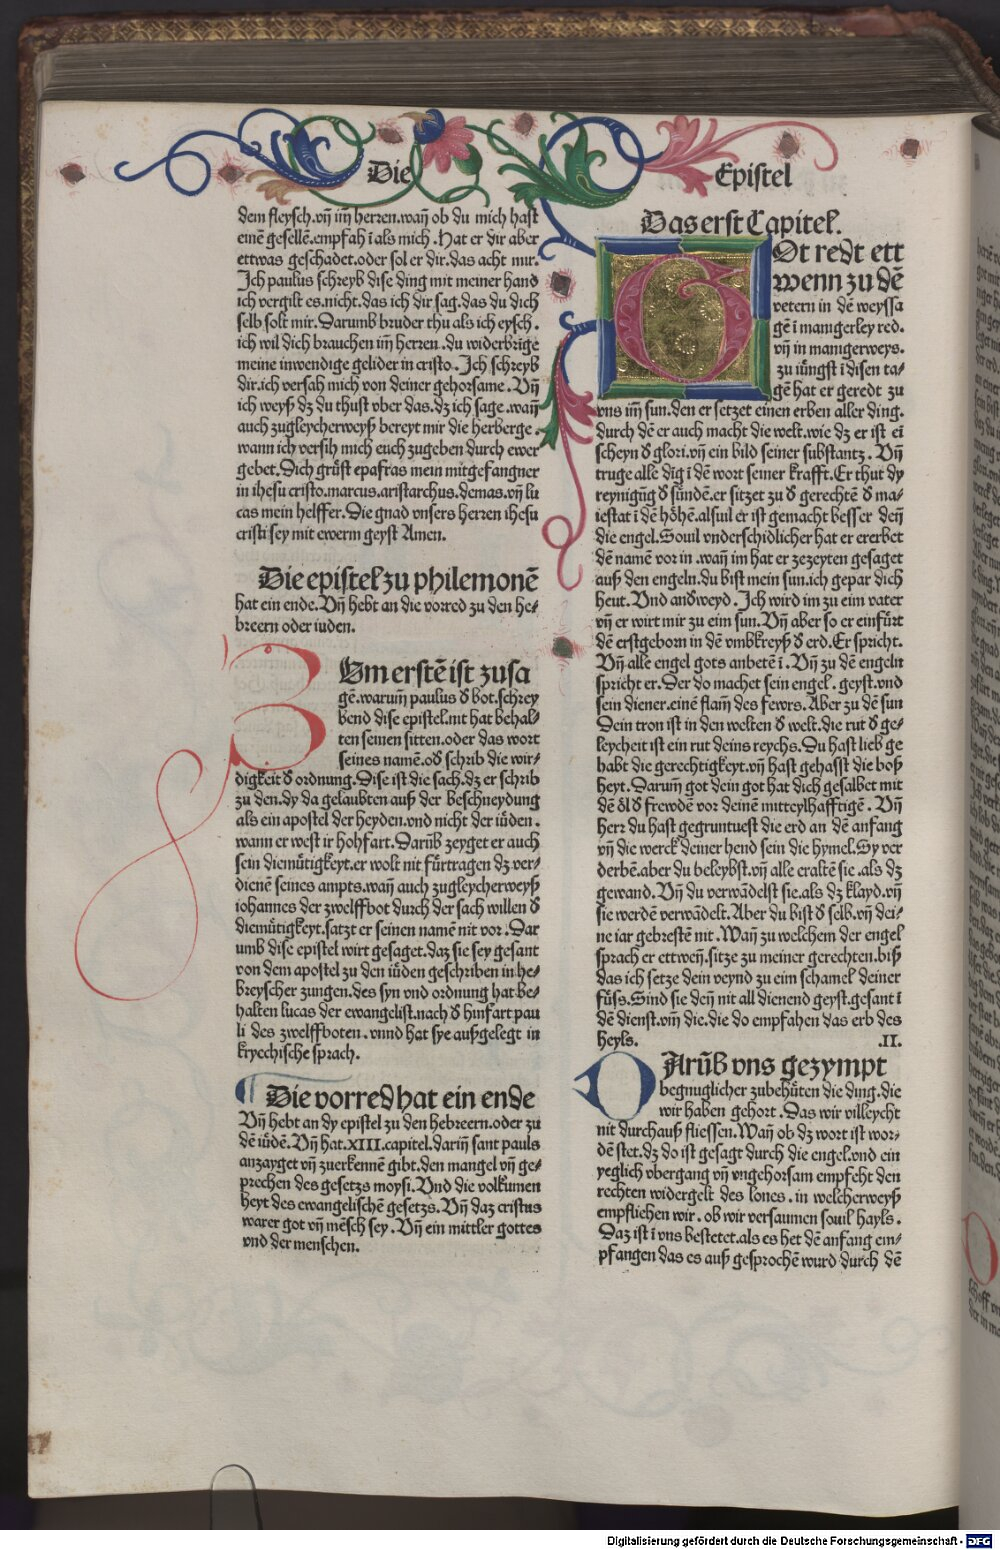 Die Epistel
dem fleysch.vñ iñ herren.wañ ob du mich hast
einē gesellē.empfah ī als mich. Hat er dir aber
ettwas geschadet.oder sol er dir.das acht mir.
Ich paulus schreyb dise ding mit meiner hand
ich vergilt es.nicht.das ich dir sag.das du dich
selb solt mir.Darumb bruder thu als ich eysch.
ich wil dich brauchen iñ herren.du widerbrige
meine inwendige gelider in cristo. Ich schreyb
dir.ich versah mich von deiner gehorsame. Vñ
ich weyß dz du thust vber das.dz ich sage.wañ
auch zugleycherweyß bereyt mir die herberge.
wann ich versih mich euch zugeben durch ewer
gebet.Dich grüst epafras mein mitgefangner
in ihesu cristo.marcus.aristarchus.demas.vñ lu
cas mein helffer.Die gnad vnsers herren ihesu
cristi sey mit ewerm geyst Amen.
Die epistel zu philemonē
hat ein ende.Vñ hebt an die vorred zu den he-
breern oder iuden.
ZVm erstē ist zusa
gē.waruṁ paulus ď bot.schrey
bend dise epistel.nit hat behal-
ten seinen sitten.oder das wort
seines namē.oď schrib die wir-
digkeit ď ordnung.Dise ist die sach.dz er schrib
zu den.dy da gelaubten auß der beschneydung
als ein apostel der heyden.vnd nicht der iüden.
wann er west ir hohfart.Darüb zeyget er auch
sein diemütigkeyt.er wolt nit fürtragen dz ver-
dienē seines ampts.wañ auch zugleycherweyß
iohannes der zwelffbot durch der sach willen ď
diemütigkeyt.satzt er seinen namē nit vor. Dar
umb dise epistel wirt gesaget.daz sie sey gesant
von dem apostel zu den iüden geschriben in he-
breyscher zungen.des syn vnd ordnung hat be-
halten lucas der ewangelist.nach ď hinfart pau
li des zwelffboten.vnnd hat sye außgelegt in
kryechische sprach.
Die vorred hat ein ende
Vñ hebt an dy epistel zu den hebreern.oder zu
dē iüdē.Vñ hat.XIII.capitel.dariñ sant pauls
anzayget vñ zuerkennē gibt.den mangel vñ ge-
prechen des gesetzs moysi.Vnd die volkumen
heyt des ewangelischē gesetzs.Vñ daz cristus
warer got vñ mēsch sey.Vñ ein mittler gottes
vnd der menschen.
Das erst Capitel.
GOt redt ett
wenn zu dē
vetern in dē weyssa
gē ī manigerley red.
vñ in manigerweys.
zu iüngst ī disen ta-
gē hat er geredt zu
vns iñ sun.den er setzet einen erben aller ding.
durch dē er auch macht die welt.wie dz er ist eī
scheyn ď glori.vñ ein bild seiner substantz. Vñ
truge alle dīg ī dē wort seiner krafft.Er thut dy
reynigūg ď sündē.er sitzet zu ď gerechtē ď ma-
iestat ī dē höhē.alsuil er ist gemacht besser deñ
die engel.Souil vnderschidlicher hat er ererbet
dē namē vor in.wañ im hat er zezeyten gesaget
auß den engeln.du bist mein sun.ich gepar dich
heut.Vnd anďweyd.Ich wird im zu eim vater
vñ er wirt mir zu eim sun.Vñ aber so er einfürt
dē erstgeborn in dē vmbkreyß ď erd.Er spricht.
Vñ alle engel gots anbetē ī.Vñ zu dē engeln
spricht er.Der do machet sein engel.geyst.vnd
sein diener.einē flaṁ des fewrs.Aber zu dē sun
Dein tron ist in den welten ď welt.die rut ď ge-
leycheit ist ein rut deins reychs.Du hast lieb ge
habt die gerechtigkeyt.vñ hast gehasst die boß
heyt.Daruṁ got dein got hat dich gesalbet mit
dē öl ď frewdē vor deinē mitteylhafftigē. Vñ
herr du hast gegruntuest die erd an dē anfang
vñ die werck deiner hend sein die hymel.Sy ver
derbē.aber du beleybst.vñ alle eraltē sie.als dz
gewand.Vñ du verwādelst sie.als dz klayd.vñ
sie werdē verwādelt.Aber du bist ď selb.vñ dei-
ne iar gebrestē nit.Wañ zu welchem der engel
sprach er ettweñ.sitze zu meiner gerechten.biß
das ich setze dein veynd zu eim schamel deiner
füss.Sind sie deñ nit all dienend geyst.gesant ī
dē dienst.vṁ die.die do empfahen das erb des
heyls. .II.
DArüb vns gezympt
begnuglicher zubehüten die ding.die
wir haben gehort.Das wir villeycht
nit durchauß fliessen.Wañ ob dz wort ist wor-
dē stet.dz do ist gesagt durch die engel.vnd ein
yeglich vbergang vñ vngehorsam empfeht den
rechten widergelt des lones.in welcherweyß
empfliehen wir.ob wir versaumen souil hayls.
Daz ist ī vns bestetet.als es het dē anfang em-
pfangen das es auß gesprochē wurd durch dē
Digitalisierung gefördert durch die Deutsche Forschungsgemeinschaft - DFG